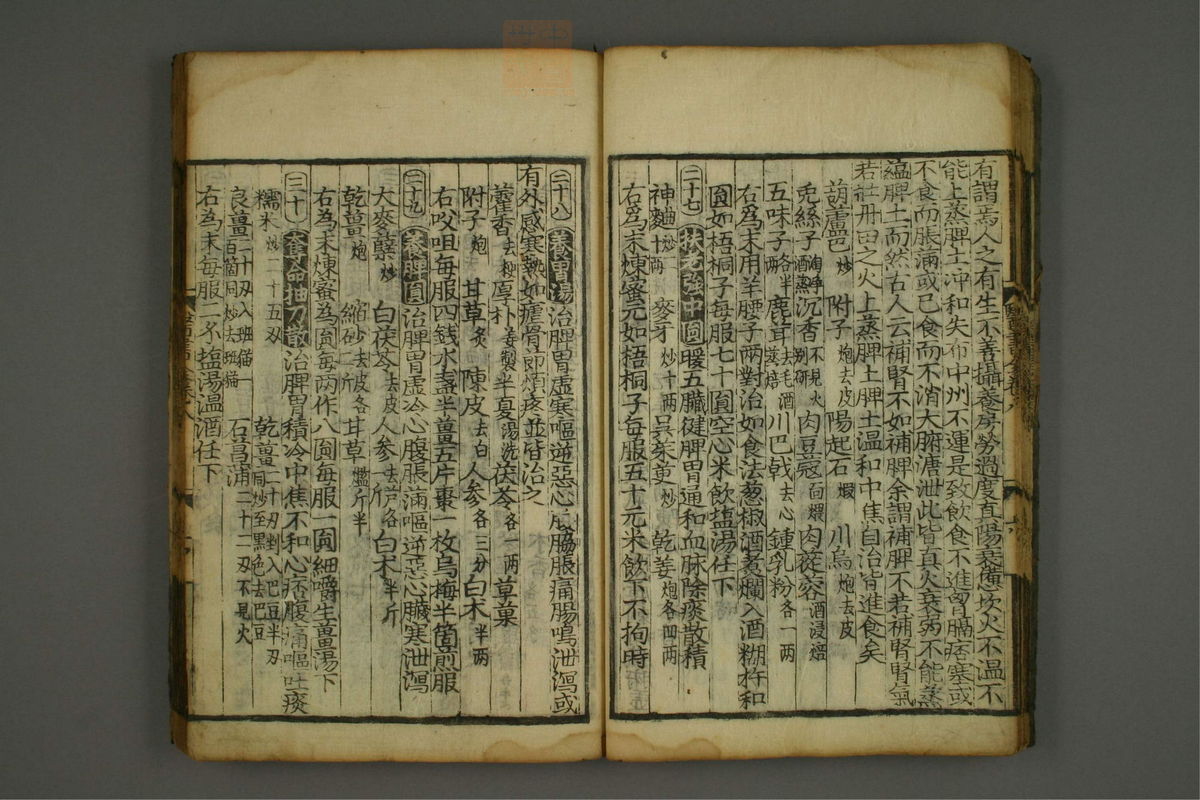 有謂焉人之有生不善攝養房勞過度真陽衰備坎火不温不
能上蒸脾土冲和失布中州不運是致飲食不進胷膈痞塞或
不食而脹滿或已食而不消大腑溏泄此皆真火衰弱不能蒸
藴脾土而然古人云補腎不如補脾余謂補脾不若補腎腎氣
若壮丹田之火上蒸脾土脾土温和中焦自治皆進食矣
葫蘆巴炒 附子炮去皮 陽起石煅 川烏炮去皮
兎絲子淘凈酒蒸 沉香不見火別研 肉豆蔻面煨 肉蓯蓉酒浸焙
五味子各半兩 鹿茸去毛酒蒸焙 川巴戟去心 鍾乳粉各一兩
右為末用羊腰子兩對治如食法葱椒酒煮爛入酒糊杵和
圓如梧桐子每服七十圓空心米飲塩湯任下
二十七 扶老強中圓 暖五臟健脾胃通和血脉除痰散積
神麯炒十兩 麥牙炒十兩 吳茱萸炒 乾姜炮各四兩
右為末煉蜜元如梧桐子每服五十元米飲下不拘時
二十八 養胃湯 治脾胃虛寒嘔逆惡心腹脇脹痛腸鳴泄瀉或
有外感寒熱如瘧骨節煩疼並皆治之
藿香去梗 厚朴姜製 半夏湯洗 茯苓各一兩 草菓
附子炮 甘草炙 陳皮去白 人參各三分 白术半兩
右㕮咀每服四錢水盞半薑五片棗一枚烏梅半箇煎服
二十九 養脾圓 治脾胃虛冷心腹脹滿嘔逆惡心臟寒泄瀉
大麥糵炒 白茯苓去皮 人參去芦各一斤 白术半斤
乾薑炮 縮砂去皮各二斤 甘草爁斤半
右為末煉蜜為圓每两作八圓每服一圓細嚼生薑湯下
三十 奪命抽刀散 治脾胃積冷中焦不和心痞腹痛嘔吐痰
糯米炒二十五刄 乾薑二十刄剉入巴豆半刄同炒至黑色去巴豆
良薑二十刄入班猫一百箇同炒去班猫 石菖蒲二十二刄不見火
右為末每服二不塩湯温酒任下